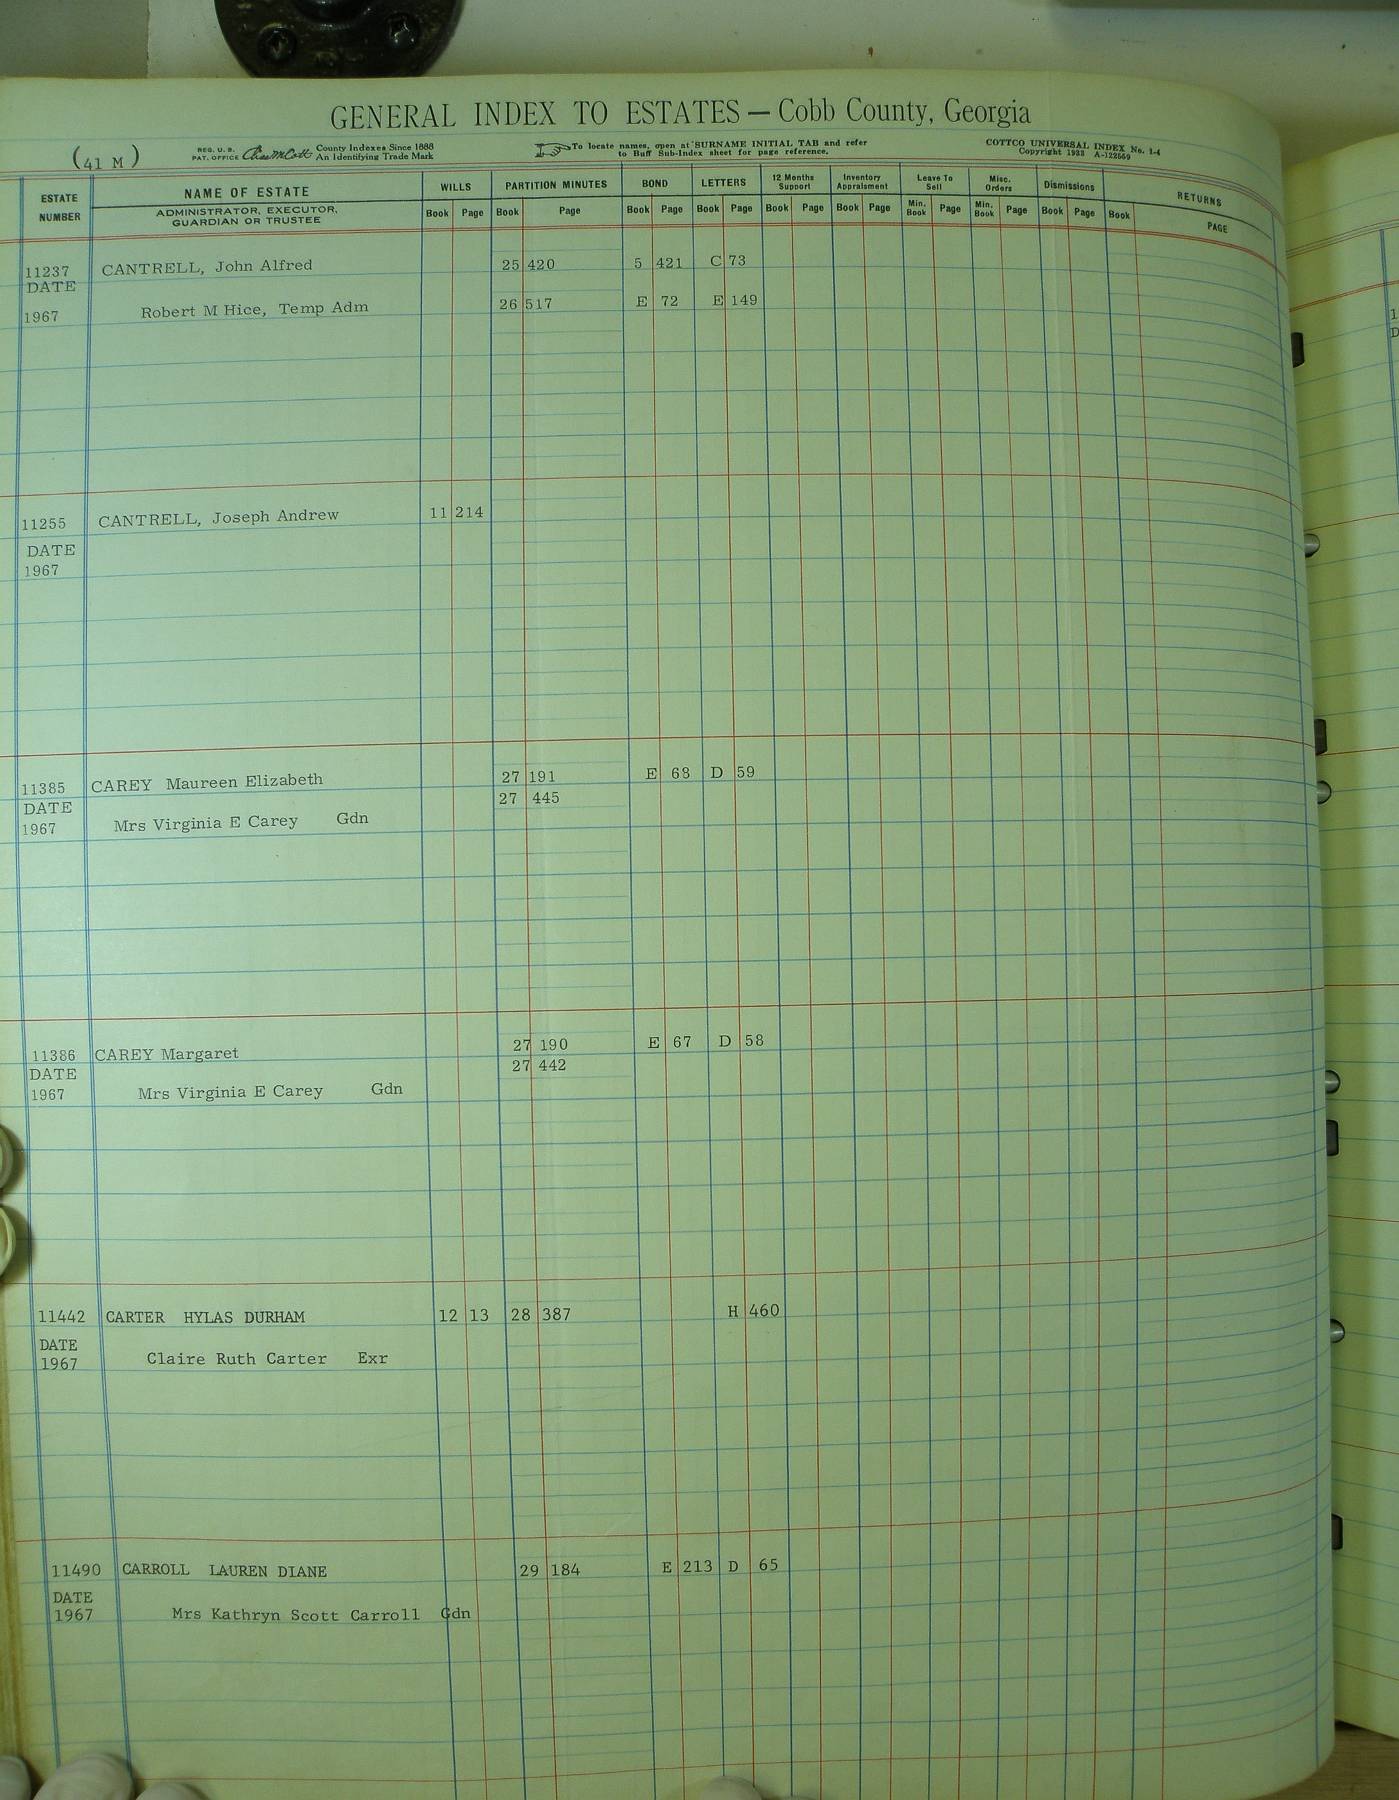 GENERAL INDEX TO ESTATES — Cobb County, Georgia
(41 M)
REG. U. S. PAT. OFFICE County Indexes Since 1888 An Identifying Trade Mark
To locate names, open at SURNAME INITIAL TAB and refer to Buff Sub-Index sheet for page reference.
COTTCO UNIVERSAL INDEX No. 1-4
Copyright 1933 A-122559
ESTATE NUMBER NAME OF ESTATE WILLS PARTITION MINUTES BOND LETTERS 12 Months Support Inventory Appraisment Leave To Sell Misc. Orders Dismissions RETURNS
ADMINISTRATOR, EXECUTOR, GUARDIAN OR TRUSTEE Book Page Book Page Book Page Book Page Book Page Book Page Min. Book Page Min. Book Page Book Page Book PAGE
11237 CANTRELL, John Alfred 25 420 5 421 C 73
DATE
1967 Robert M Hice, Temp Adm 26 517 E 72 E 149
11255 CANTRELL, Joseph Andrew 11 214
DATE
1967
11385 CAREY Maureen Elizabeth 27 191 E 68 D 59
DATE 27 445
1967 Mrs Virginia E Carey Gdn
11386 CAREY Margaret 27 190 E 67 D 58
DATE 27 442
1967 Mrs Virginia E Carey Gdn
11442 CARTER HYLAS DURHAM 12 13 28 387 H 460
DATE
1967 Claire Ruth Carter Exr
11490 CARROLL LAUREN DIANE 29 184 E 213 D 65
DATE
1967 Mrs Kathryn Scott Carroll Gdn